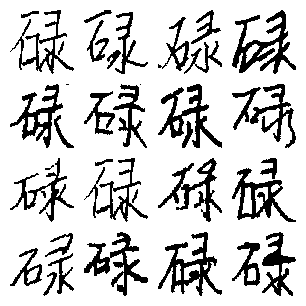 碌碌碌碌
碌碌碌碌
碌碌碌碌
碌碌碌碌